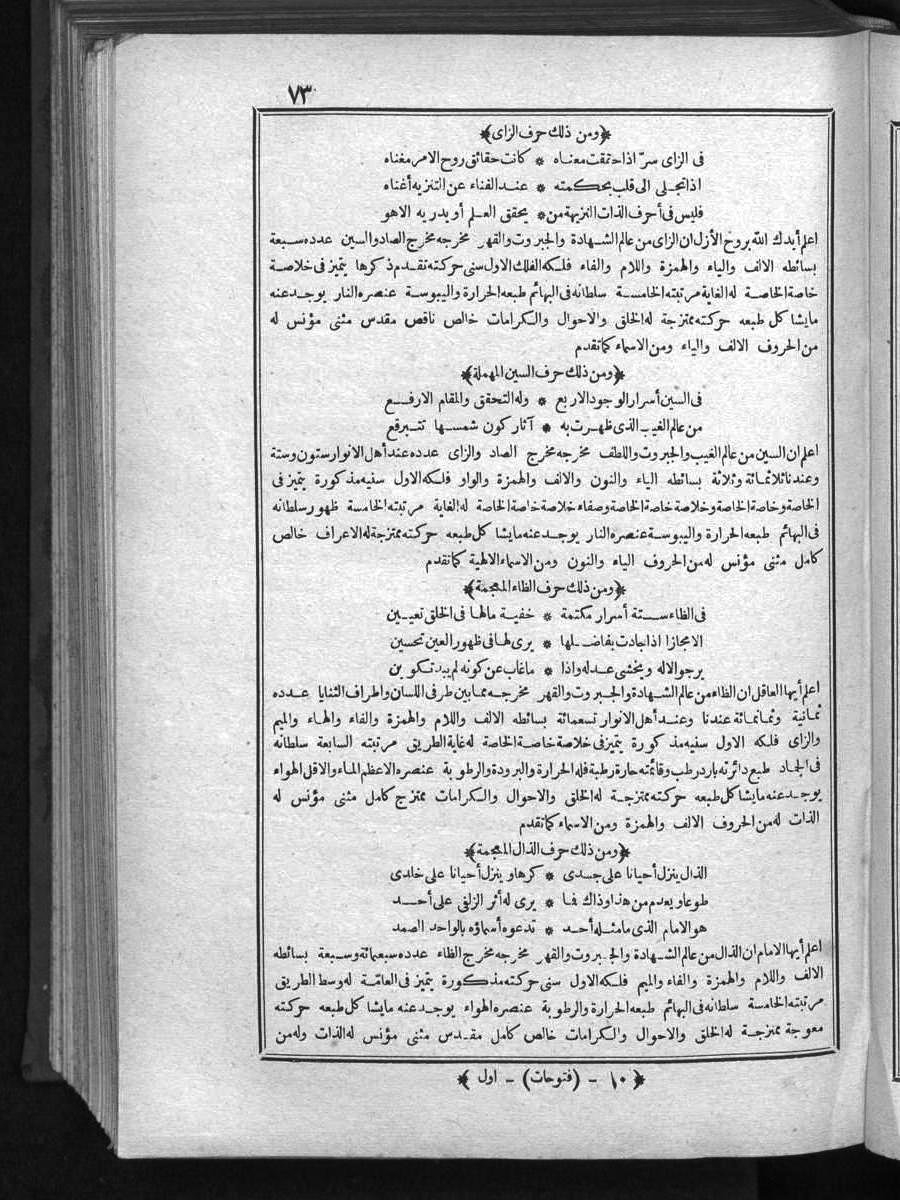 ٧٣
﴿ومن ذلك حرف الزاى﴾
فى الزاى سرّ اذا حققت معناه * كانت حقائق روح الامر مغناه
اذا تجلى الى قلب بحكمته * عند الفناء عن التنزيه أغناه
فليس فى أحرف الذات النزيهة من * يحقق العلم أو يدريه الاهو
اعلم أيدك الله بروح الأزل ان الزاى من عالم الشهادة والجبروت والقهر مخرجه مخرج الصاد والسين عدده سبعة
بسائطه الالف والياء والهمزة واللام والفاء فلكه الفلك الاول سنى حركته تقدم ذكرها يتميز فى خلاصة
خاصة الخاصة له الغاية مرتبته الخامسة سلطانه فى البهائم طبعه الحرارة واليبوسة عنصره النار يوجد عنه
مايشا كل طبعه حركته ممتزجة له الخلق والاحوال والكرامات خالص ناقص مقدس مثنى مؤنس له
من الحروف الالف والياء ومن الاسماء كما تقدم
﴿ومن ذلك حرف السين المهملة﴾
فى السين أسرار الوجود الاربع * وله التحقق والمقام الارفع
من عالم الغيب الذى ظهرت به * آثار كون شمسها تتبرقع
اعلم ان السين من عالم الغيب والجبروت واللطف مخرجه مخرج الصاد والزاى عدده عند أهل الانوار ستون وستة
وعندنا ثلاثمائة وثلاثة بسائطه الياء والنون والالف والهمزة والواو فلكه الاول سنيه مذكورة يتميز فى
الخاصة وخاصة الخاصة وخلاصة خاصة الخاصة وصفاء خلاصة خاصة الخاصة له الغاية مرتبته الخامسة ظهور سلطانه
فى البهائم طبعه الحرارة واليبوسة عنصره النار يوجد عنه مايشا كل طبعه حركته ممتزجة له الاعراف خالص
كامل مثنى مؤنس له من الحروف الياء والنون ومن الاسماء الالهية كما تقدم
﴿ومن ذلك حرف الظاء المعجمة﴾
فى الظاء ستة أسرار مكتمة * خفية مالها فى الخلق تعيين
الا مجازا اذا جادت بفاضلها * يرى لها فى ظهور العين تحسين
يرجو الاله ويخشى عدله واذا * ماغاب عن كونه لم يبد تكوين
اعلم أيها العاقل ان الظاء من عالم الشهادة والجبروت والقهر مخرجه مما بين طرفى اللسان واطراف الثنايا عدده
ثمانية وثمانمائة عندنا وعند أهل الانوار تسعمائة بسائطه الالف واللام والهمزة والفاء والهاء والميم
والزاى فلكه الاول سنيه مذكورة يتميز فى خلاصة خاصة الخاصة له غاية الطريق مرتبته السابعة سلطانه
فى الجماد طبع دائرته بارد رطب وقائمته حارة رطبة فله الحرارة والبرودة والرطوبة عنصره الاعظم الماء والاقل الهواء
يوجد عنه مايشا كل طبعه حركته ممتزجة له الخلق والاحوال والكرامات ممتزج كامل مثنى مؤنس له
الذات له من الحروف الالف والهمزة ومن الاسماء كما تقدم
﴿ومن ذلك حرف الذال المعجمة﴾
الذال ينزل أحيانا على جسدى * كرها وينزل أحيانا على خلدى
طوعا ويعدم من هذا وذاك فما * يرى له أثر الزلفى على أحد
هو الامام الذى ما مثله أحد * تدعوه أسماؤه بالواحد الصمد
اعلم أيها الامام ان الذال من عالم الشهادة والجبروت والقهر مخرجه مخرج الظاء عدده سبعمائة وسبعة بسائطه
الالف واللام والهمزة والفاء والميم فلكه الاول سنى حركته مذكورة يتميز فى العامّة له وسط الطريق
مرتبته الخامسة سلطانه فى البهائم طبعه الحرارة والرطوبة عنصره الهواء يوجد عنه مايشا كل طبعه حركته
معوجة ممتزجة له الخلق والاحوال والكرامات خالص كامل مقدس مثنى مؤنس له الذات وله من
﴿١٠ - (فتوحات) - اول﴾